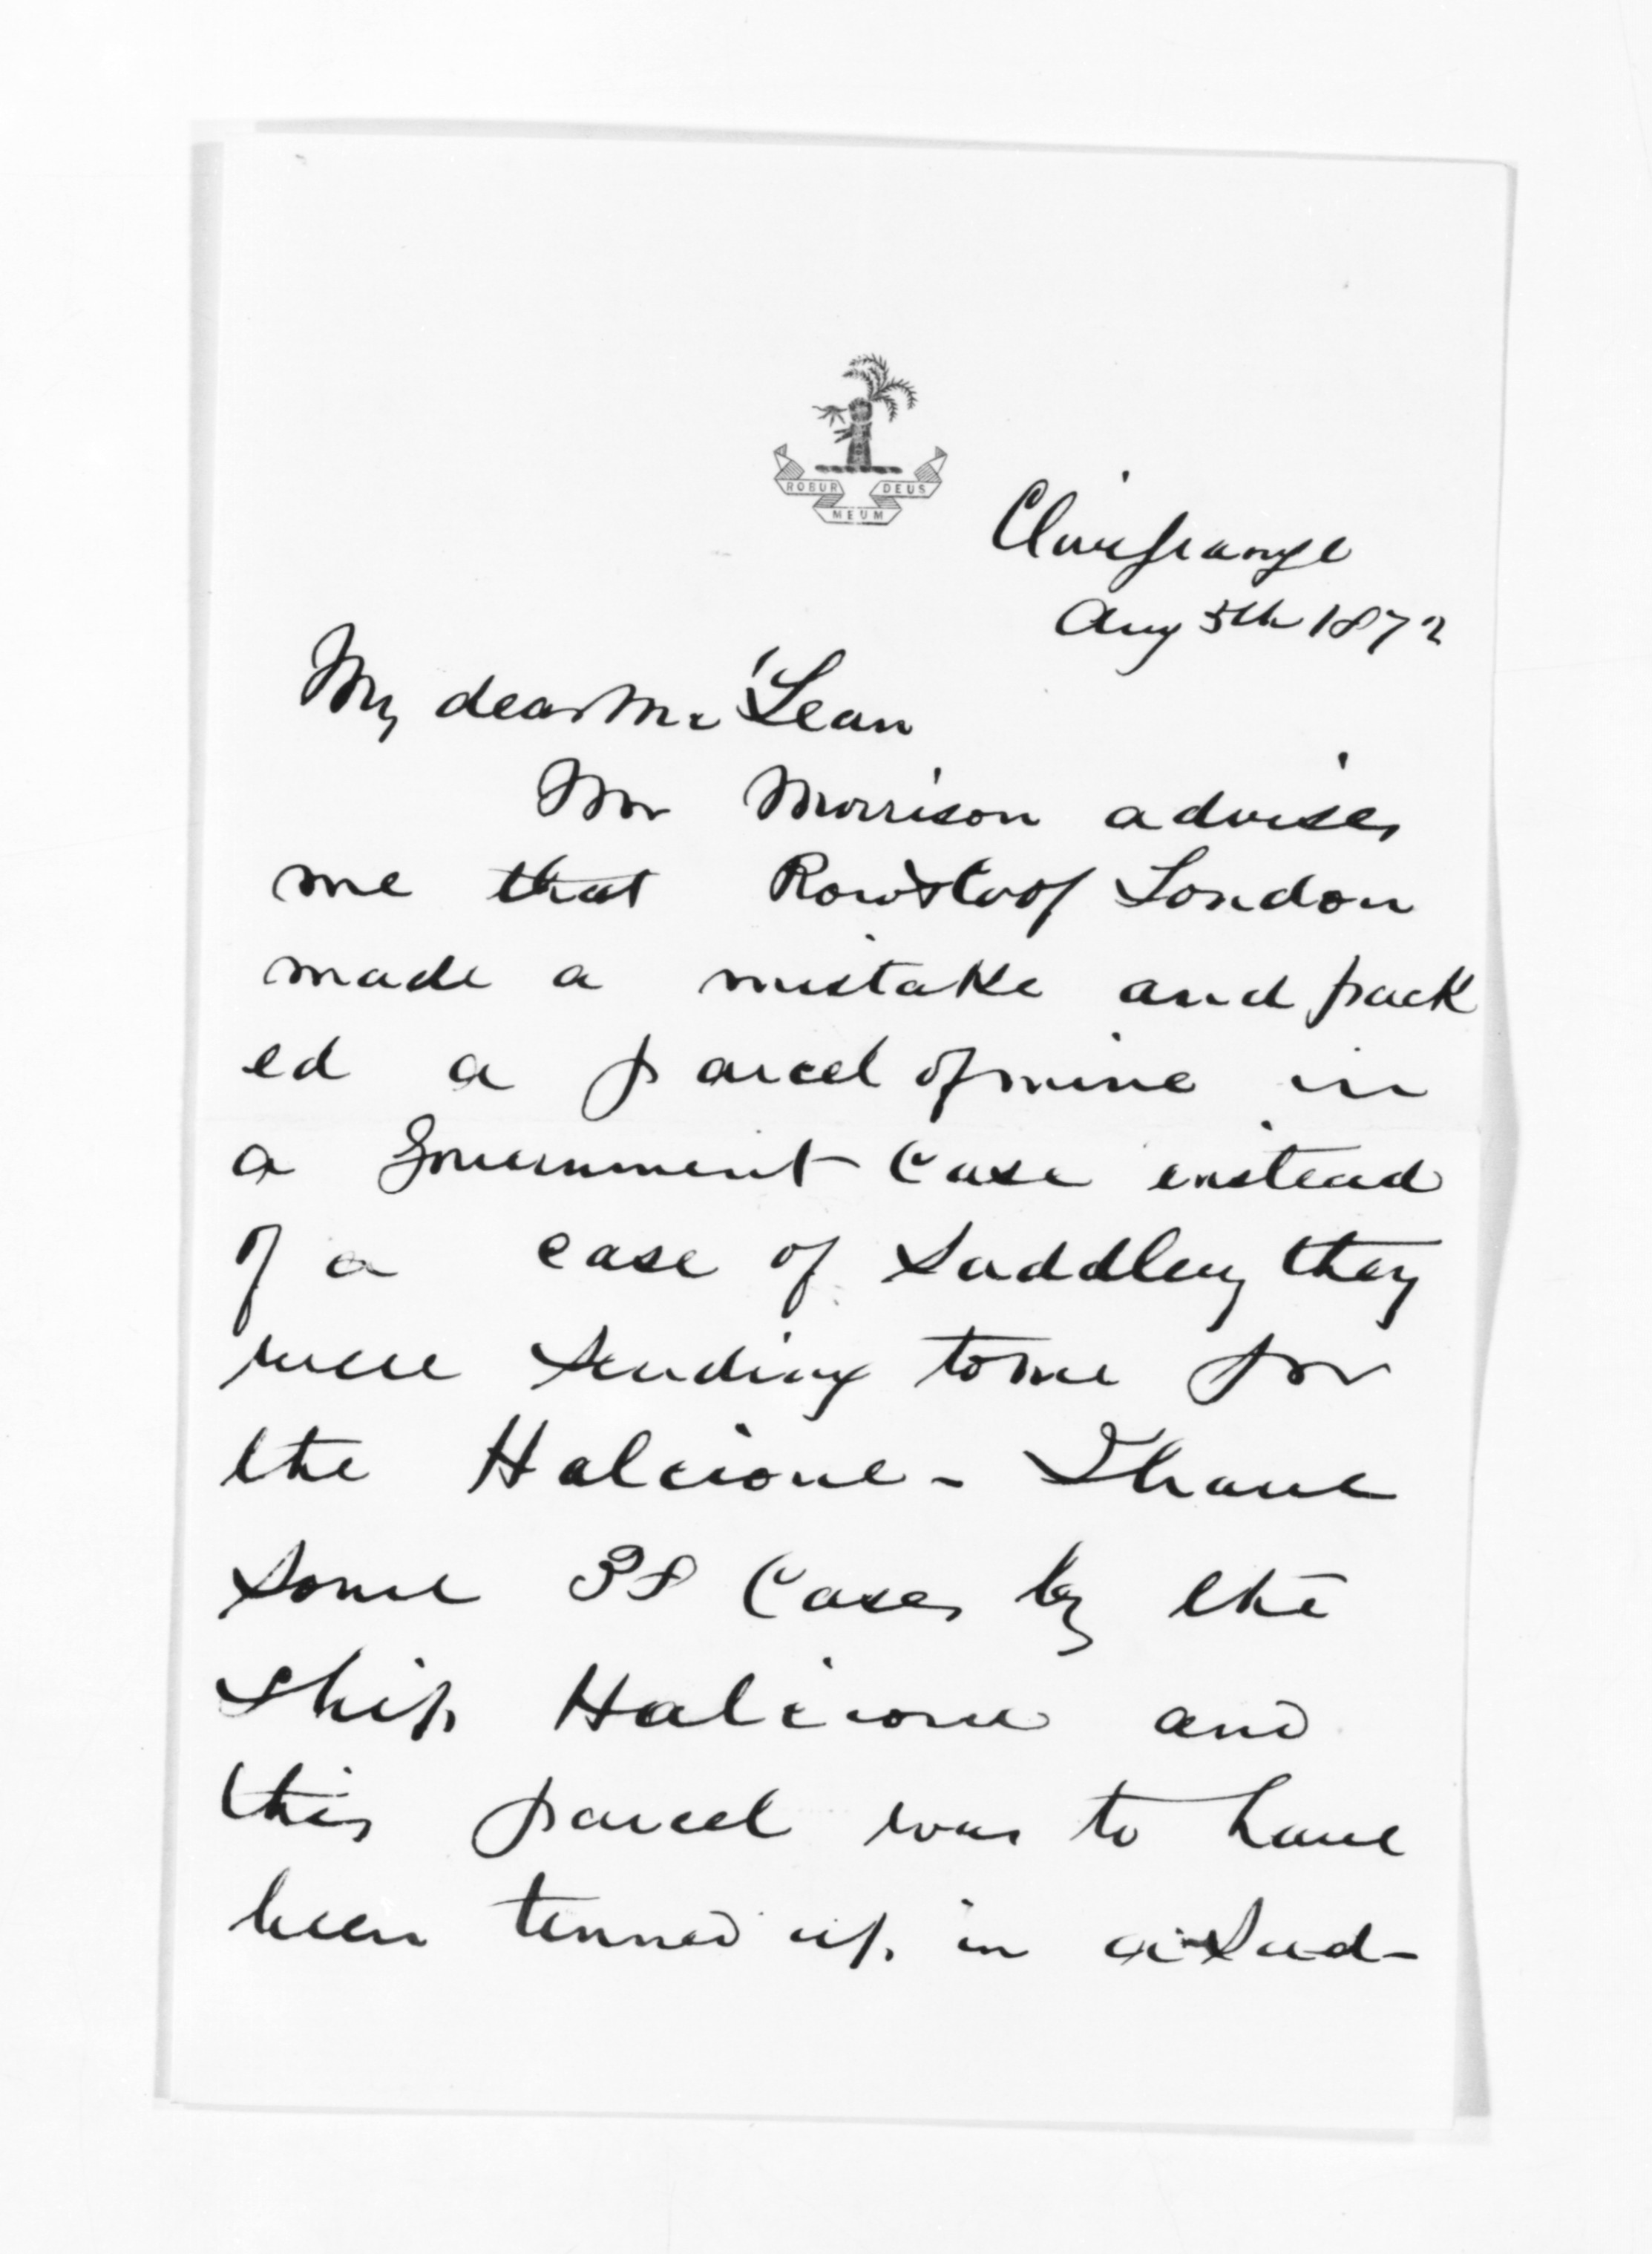 ROBUR DEUS
MEUM
Clivegrange
Aug 5th 1872
My dear Mc Lean
Mr Morrison advises
me that of London
made a mistake and pack
ed a parcel of mine in
a Government Case instead
of a case of Saddlery they
were sending to me for
the Halcione - I have
some 38 Cases by the
ship Halcione and
this parcel was to have
been tinned up in a Sad-